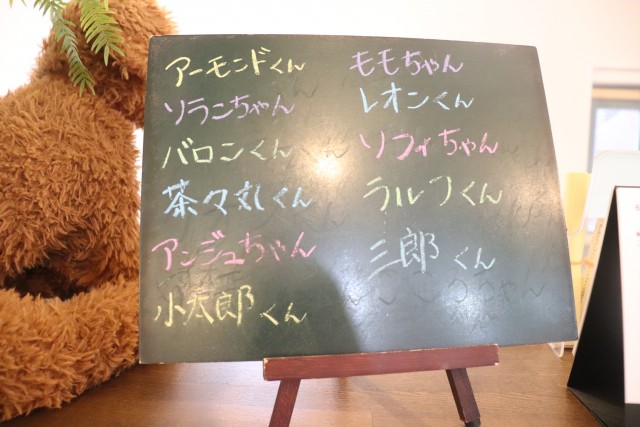 アーモンドくん
ソランちゃん
バロンくん
茶々丸くん
アンジュちゃん
小太郎くん
ももちゃん
レオンくん
ソフィちゃん
ラルフくん
三郎くん